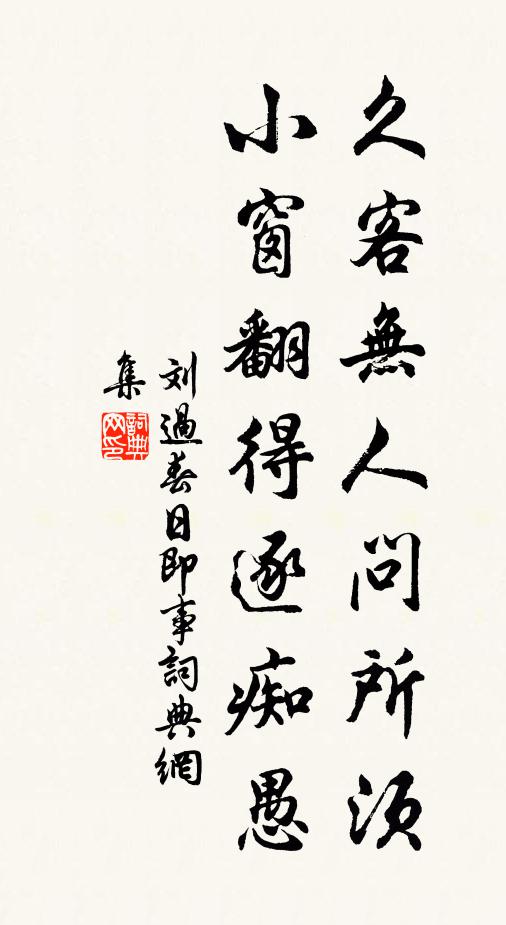 久客無人問所須
小窗翻得逐痴愚
刘過春日即事詞典網
集
詞典网印